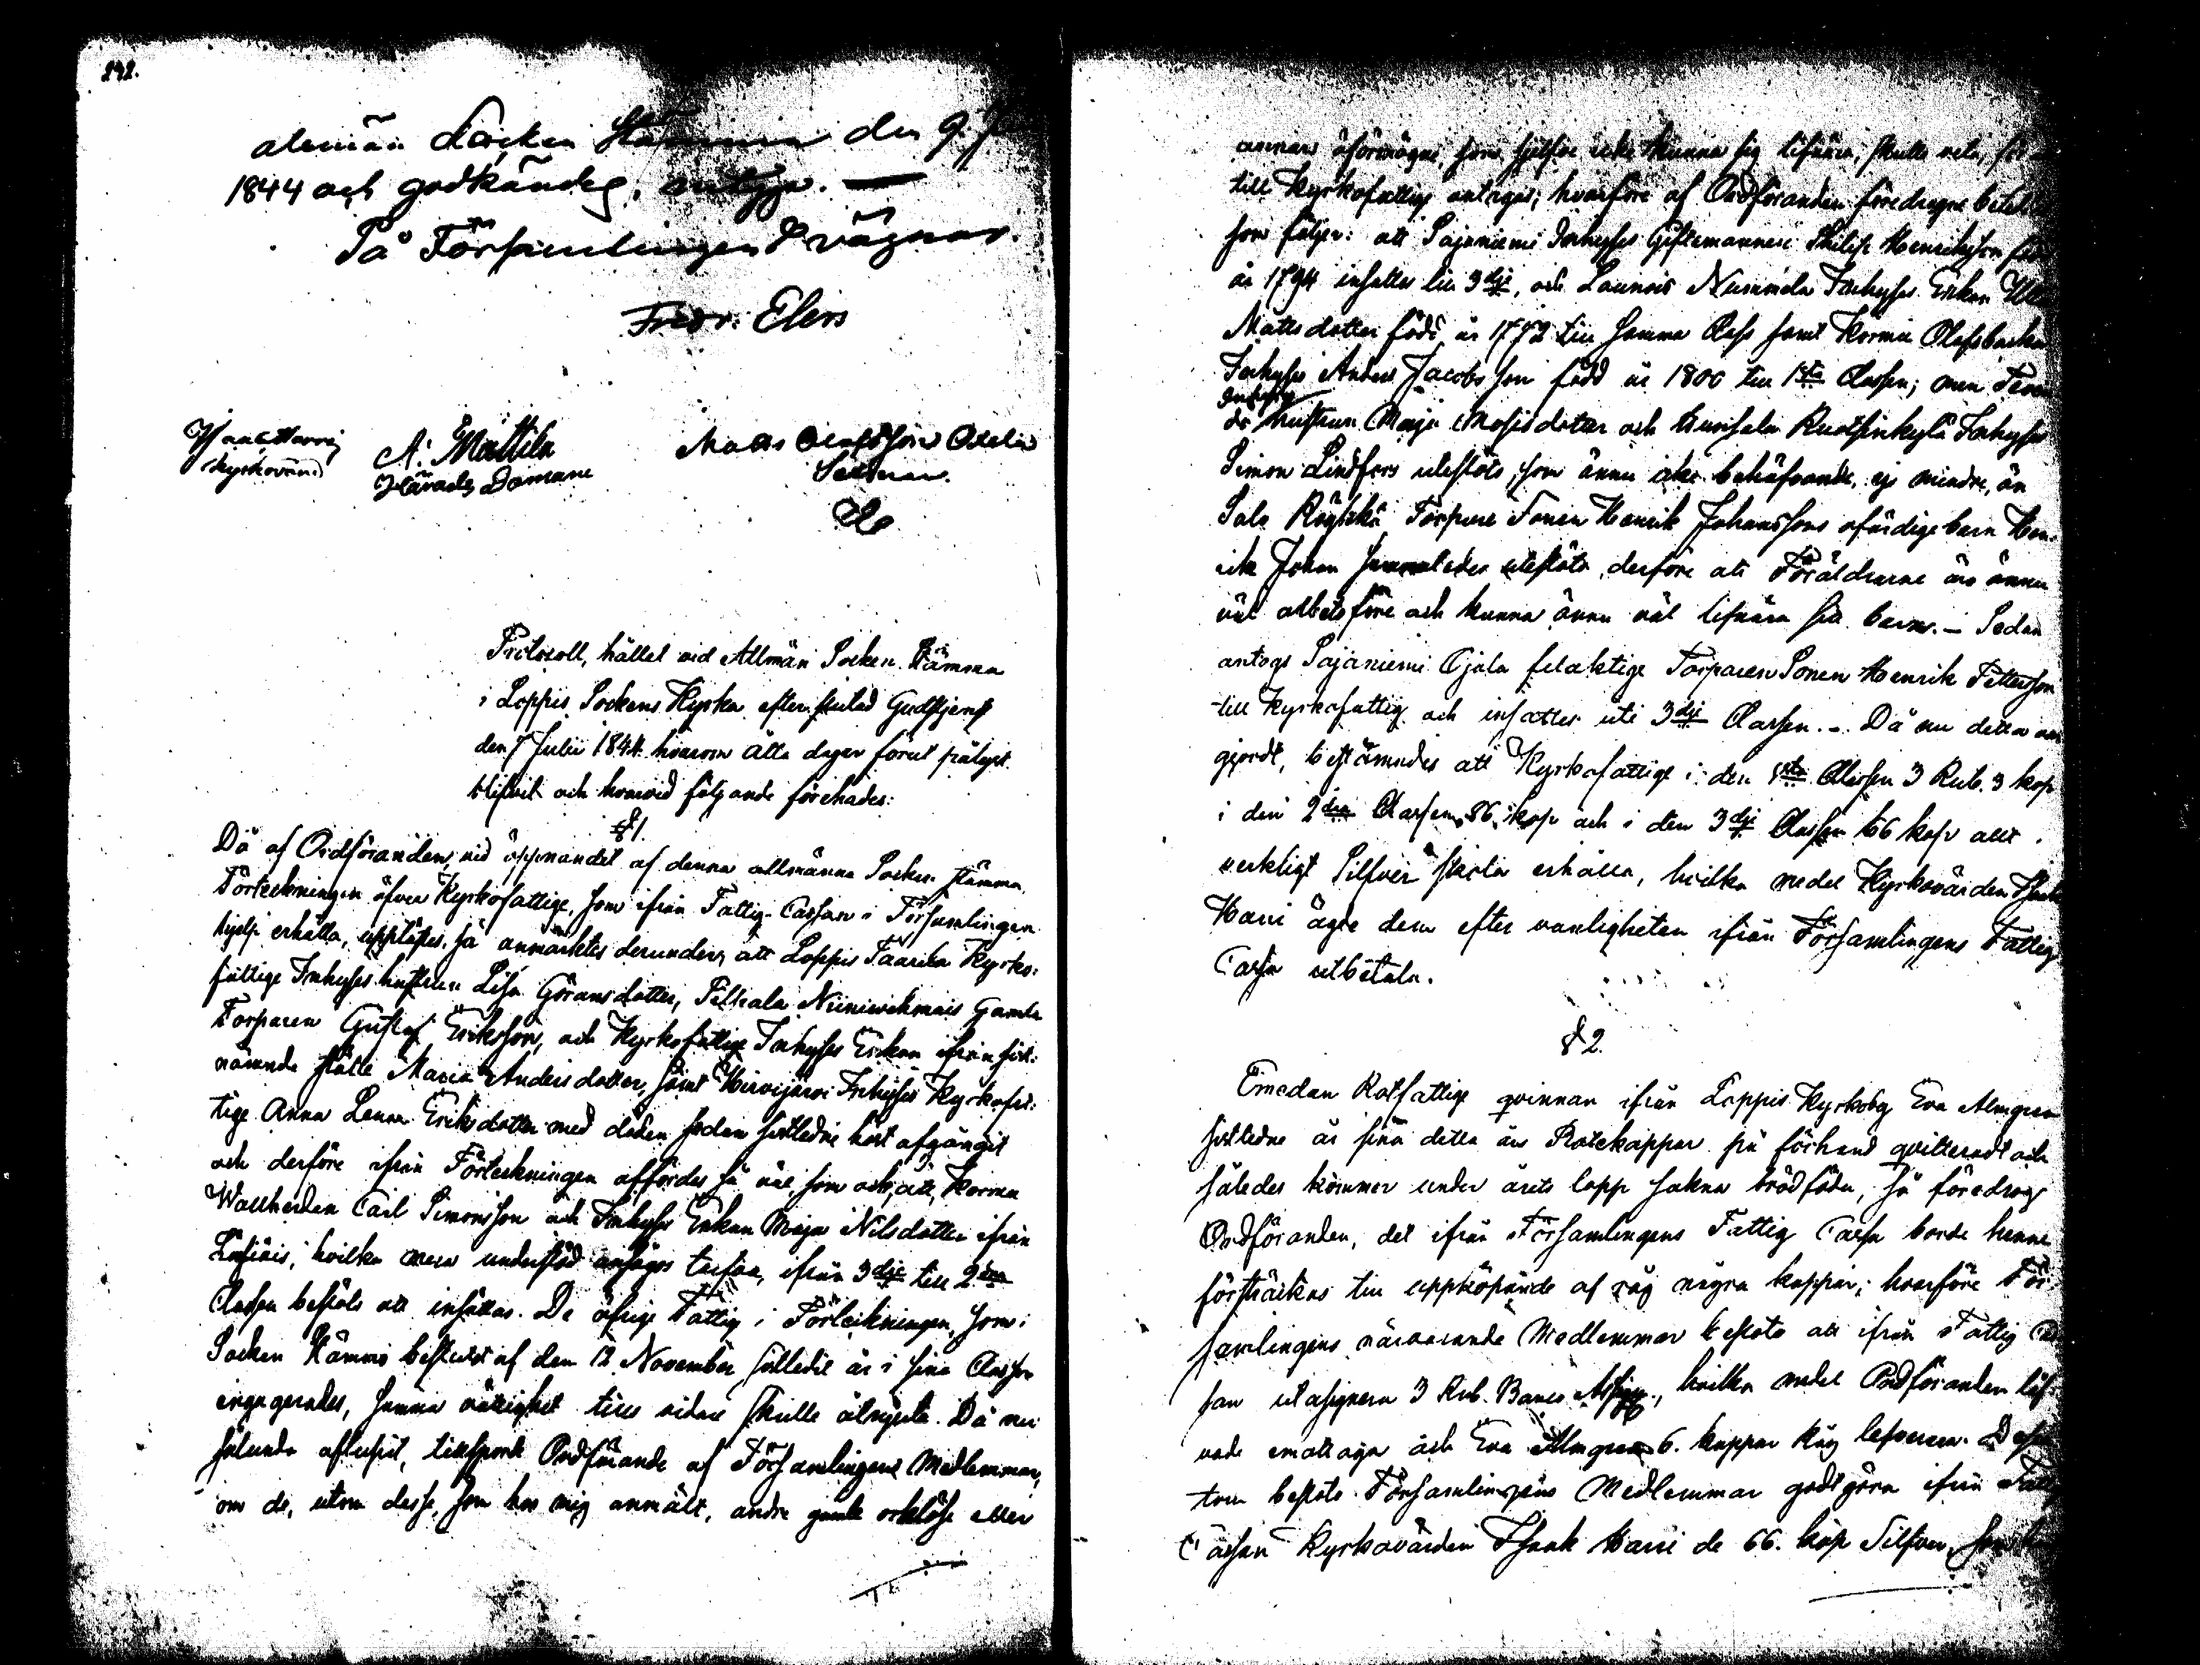 242.
alemän Socken Stämman den 9. J
1844 och godkändes, intyga. —
På Församlingens vägnar.
Fredr: Elers
Isaac Harri
Kyrkovärd
A: Mattila
Härads Domare
Matts Olofsson Ojala
Sexman.
Protocoll, hållet vid Allmän Socken Stämma
i Loppis Sockens Kyrka efter slutad Gudstjenst
den 7 Julii 1844 hvarom åtta dagar förut pålyst
blifvit och hvarvid följande förehades:
§ 1.
Då af Ordföranden, vid öppnandet af denna allmänna Socken stämma,
Förteckningen öfver Kyrkofattige, som ifrån Fattig-Cassan i Församlingen
hjelp erhålla, upplästes, så anmärktes derunder, att Loppis Taarila Kyrko:
fattige Inhyses hustrun Lisa Göransdotter, Pilkala Gamla
Torparen Gustaf Eriksson, och Kyrkofattige Inhyses Enkan ifrån sist:
nämnde ställe Maria Andersdotter, samt Hirvijärvi Inhyses Kyrkofat:
tige Anna Lena Eriksdotter med döden sedan sistledne höst afgångit
och derföre ifrån Förteckningen affördes så väl, som ock, att Kormu
Wallherden Carl Simonsson och Inhyses Enkan Maja Nilsdotter ifrån
Läyliäis, hvilka mera understöd ansågos tarfva, ifrån 3dje till 2dra
Classen beslöts att insättas. De öfrige Fattige i Förteckningen, som i
Socken Stämmo beslutet af den 12 November sistledit år i sina Classer
ingagerades, samma rättighet till vidare skulle åtnjuta. Då nu
sålunda aflupit, tillspords Ordförande af Församlingens Medlemmar,
om de, utom desse, som hos mig anmält, andre gamla orklöse eller
annars oförmögne, som sjelfve icke kunna sig lifnära, skulle veta, för
till Kyrkofattige antagas; hvarföre af Ordföranden föredrogne
som följer: att Sajaniemi Inhyses Giftemannen Philip Henriksson född
år 1794 insattes till 3dje, och Launois Nummela Inhyses Enkan Ulla
Mattsdotter född år 1772 till samma Class samt Kormu Olofsbacka
Inhyses Anders Jacobsson född år 1800 till 1sta Classen; men
Inhyses
hustrun Maja Mosisdotter och Ruotsinkylä Inhyses
Simon Lindfors uteslöts, som ännu icke behöfvande, ej mindre, än
Sale Räyskä Torpare Sonen Henrik Johanssons ofärdige barn Hen:
rik Johan sammaledes uteslöts, derföre att Föräldrarne äro ännu
väl arbetsföre och kunna ännu väl lifnära sitt barn. — Sedan
antogs Sajaniemi Ojala felaktige Torparen Sonen Henrik Pettersson
till Kyrkofattig och insattes uti 3dje Classen. — Då nu detta var
gjordt, bestämdes att Kyrkofattige i den 1sta Classen 3 Rub. 3 kop
i den 2dra Classen 86 kop och i den 3dje Classen 66 kop allt
verkligt Silfver skola erhålla, hvilka medel Kyrkovärden Isaak
Harri ägde dem efter vanligheten ifrån Församlingens Fattig
Cassa utbetala.
§ 2.
Emedan Rotfattige qvinnan ifrån Loppis Kyrkoby Eva Almgren
sistledne år sina detta års Rotekappar på förhand qvitterat och
således kommer under årets lopp sakna brödföda, så föredrog
Ordföranden, det ifrån Församlingens Fattig Cassa borde henne
försträckas till uppköpande af råg några kappar; hvarföre För:
samlingens närvarande Medlemmar beslöto att ifrån Fattig Cas
san utasignera 3 Rub. Banco Assign., hvilka medel Ordföranden låf:
vade emottaga och Eva Almgren 6. kappar Råg leverera.
tom beslöto Församlingens Medlemmar godtgöra ifrån Fattig
Cassan Kyrkovärden Isaak Harri de 66. kop Silfver, som